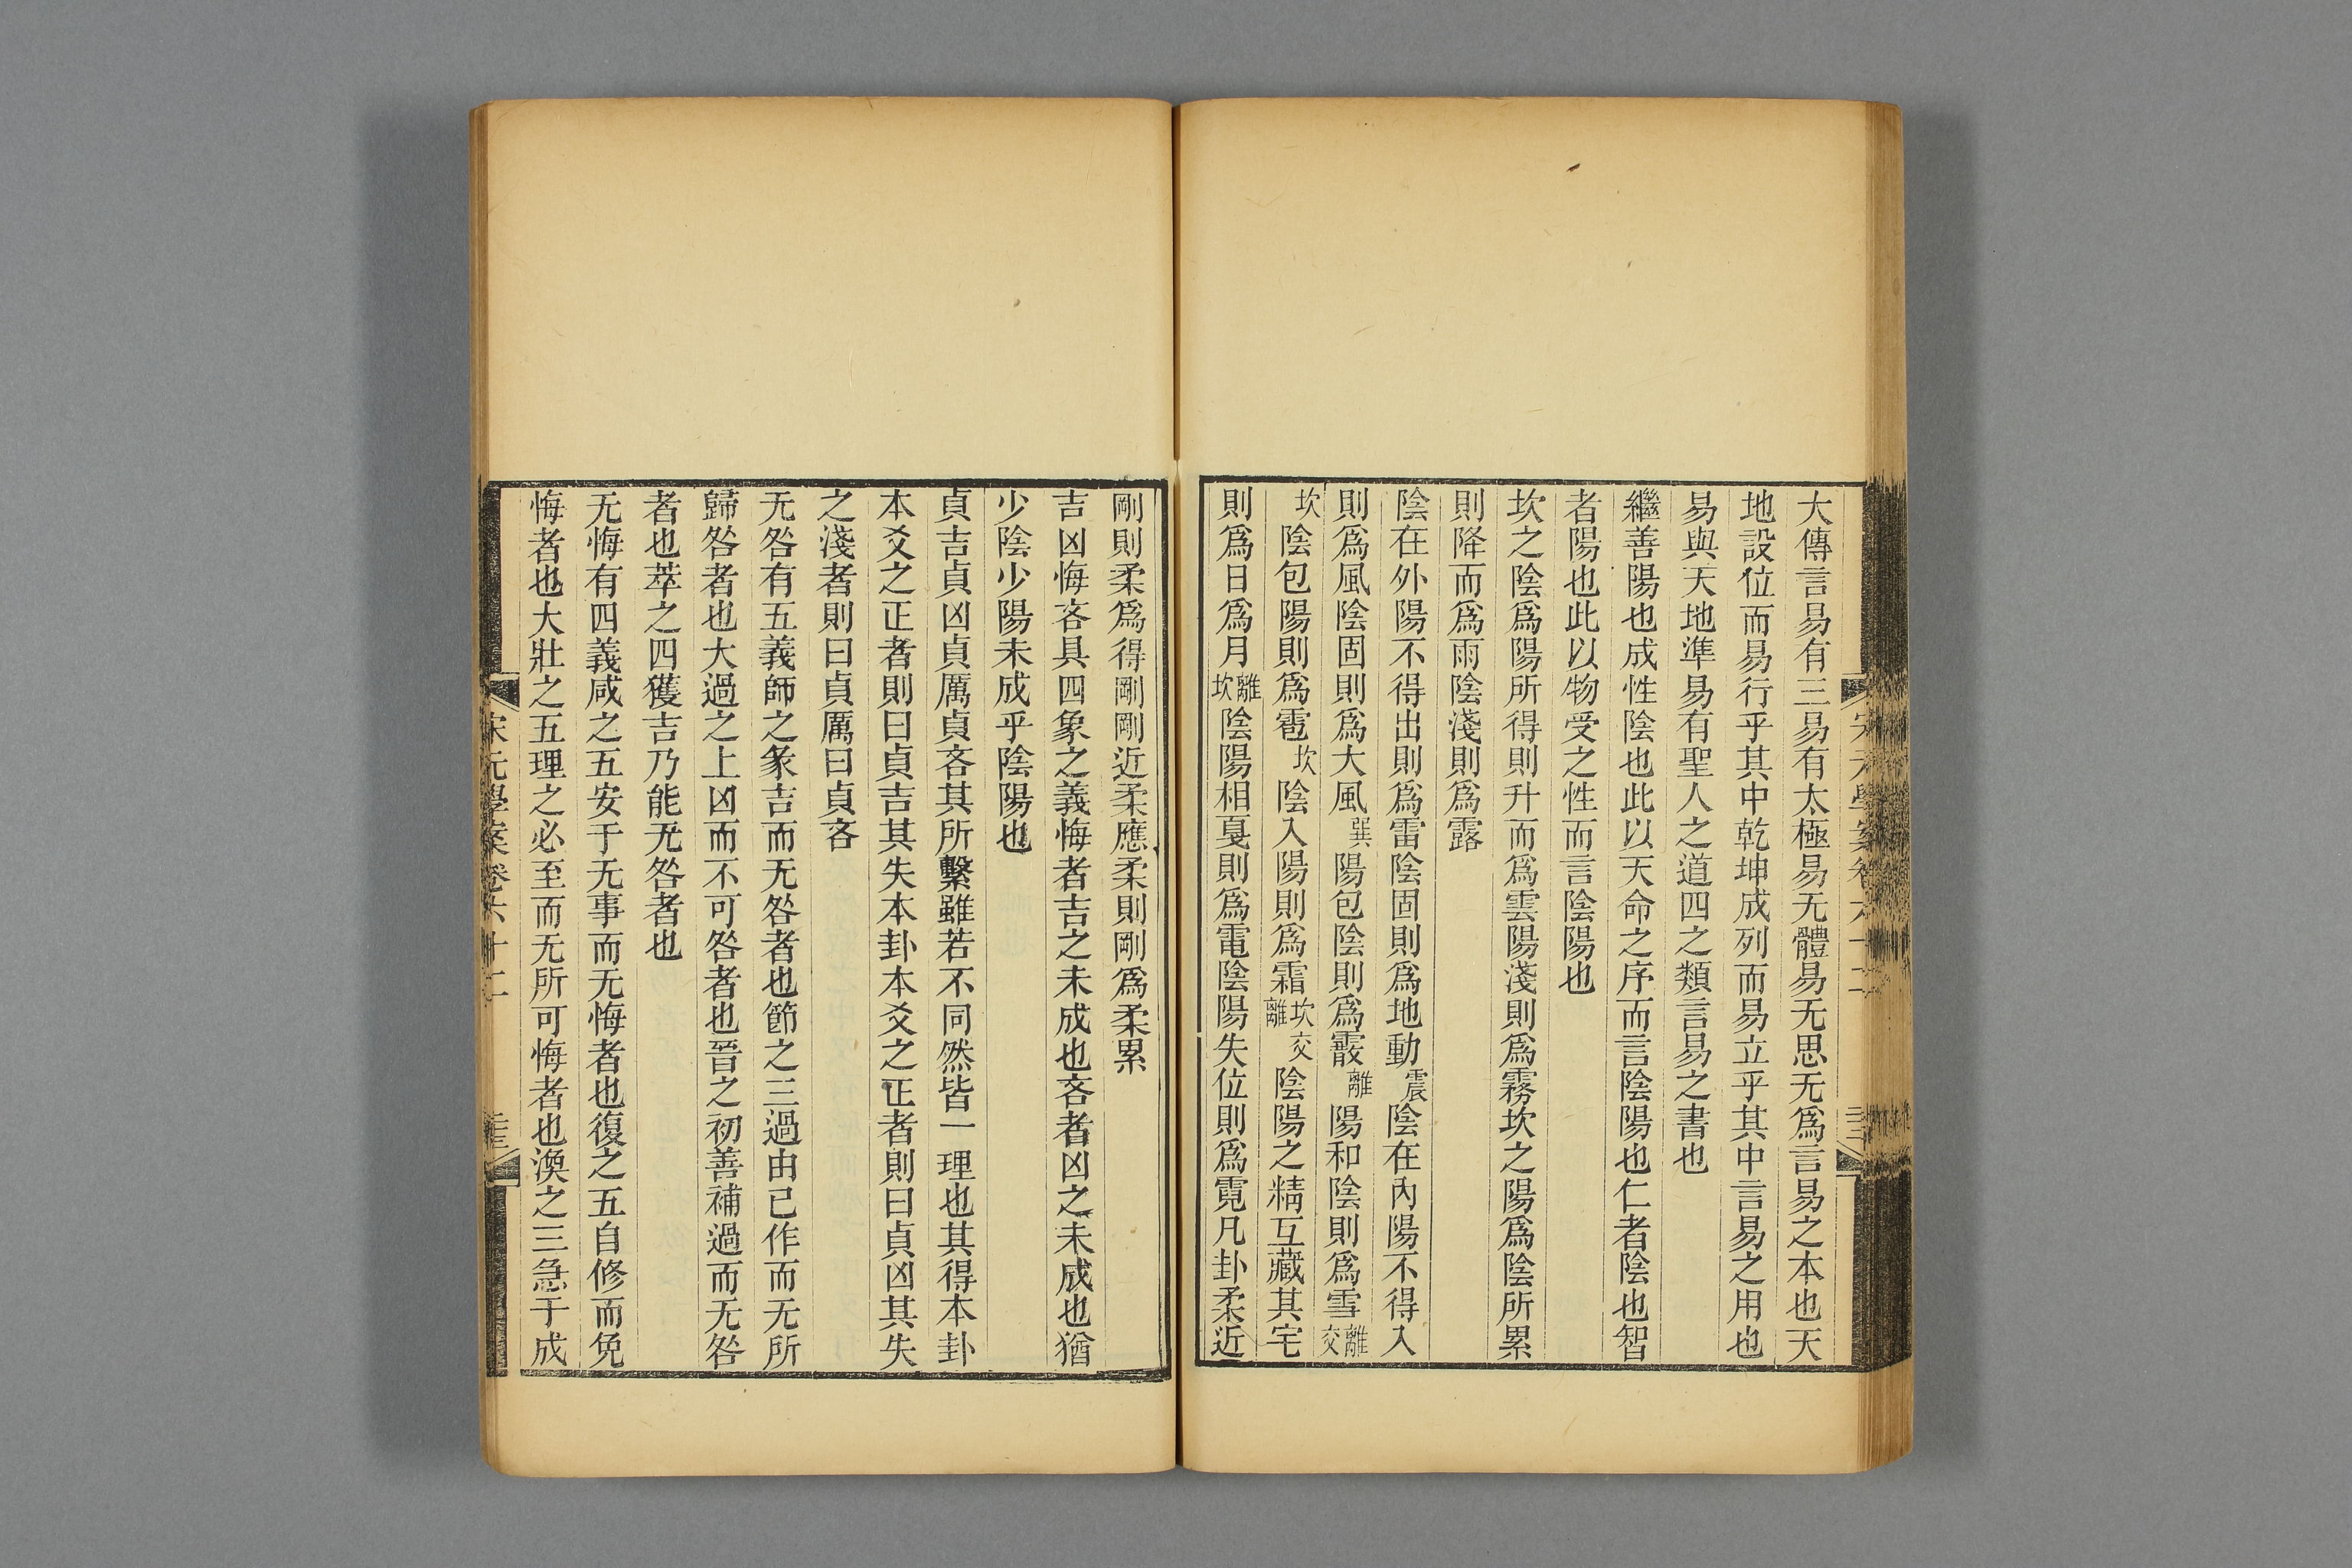 大傳言易有三易有太極易无體易无思无爲言易之本也天
地設位而易行乎其中乾坤成列而易立乎其中言易之用也
易與天地準易有聖人之道四之類言易之書也
繼善陽也成性陰也此以天命之序而言陰陽也仁者陰也智
者陽也此以物受之性而言陰陽也
坎之陰爲陽所得則升而爲雲陽淺則爲霧坎之陽爲陰所累
則降而爲雨陰淺則爲露
陰在外陽不得出則爲雷陰固則爲地動震陰在內陽不得入
則爲風陰固則爲大風巽陽包陰則爲霰離陽和陰則爲雪離交
坎陰包陽則爲雹坎陰入陽則爲霜坎交離陰陽之精互藏其宅
則爲日爲月離坎陰陽相戛則爲電陰陽失位則爲霓凡卦柔近
剛則柔爲得剛剛近柔應柔則剛爲柔累
吉凶悔吝具四象之義悔者吉之未成也吝者凶之未成也猶
少陰少陽未成乎陰陽也
貞吉貞凶貞厲貞吝其所繫雖若不同然皆一理也其得本卦
本爻之正者則曰貞吉其失本卦本爻之正者則曰貞凶其失
之淺者則曰貞厲曰貞吝
无咎有五義師之彖吉而无咎者也節之三過由己作而无所
歸咎者也大過之上凶而不可咎者也晉之初善補過而无咎
者也萃之四獲吉乃能无咎者也
无悔有四義咸之五安于无事而无悔者也復之五自修而免
悔者也大壯之五理之必至而无所可悔者也渙之三急于成
宋元學案卷六十二